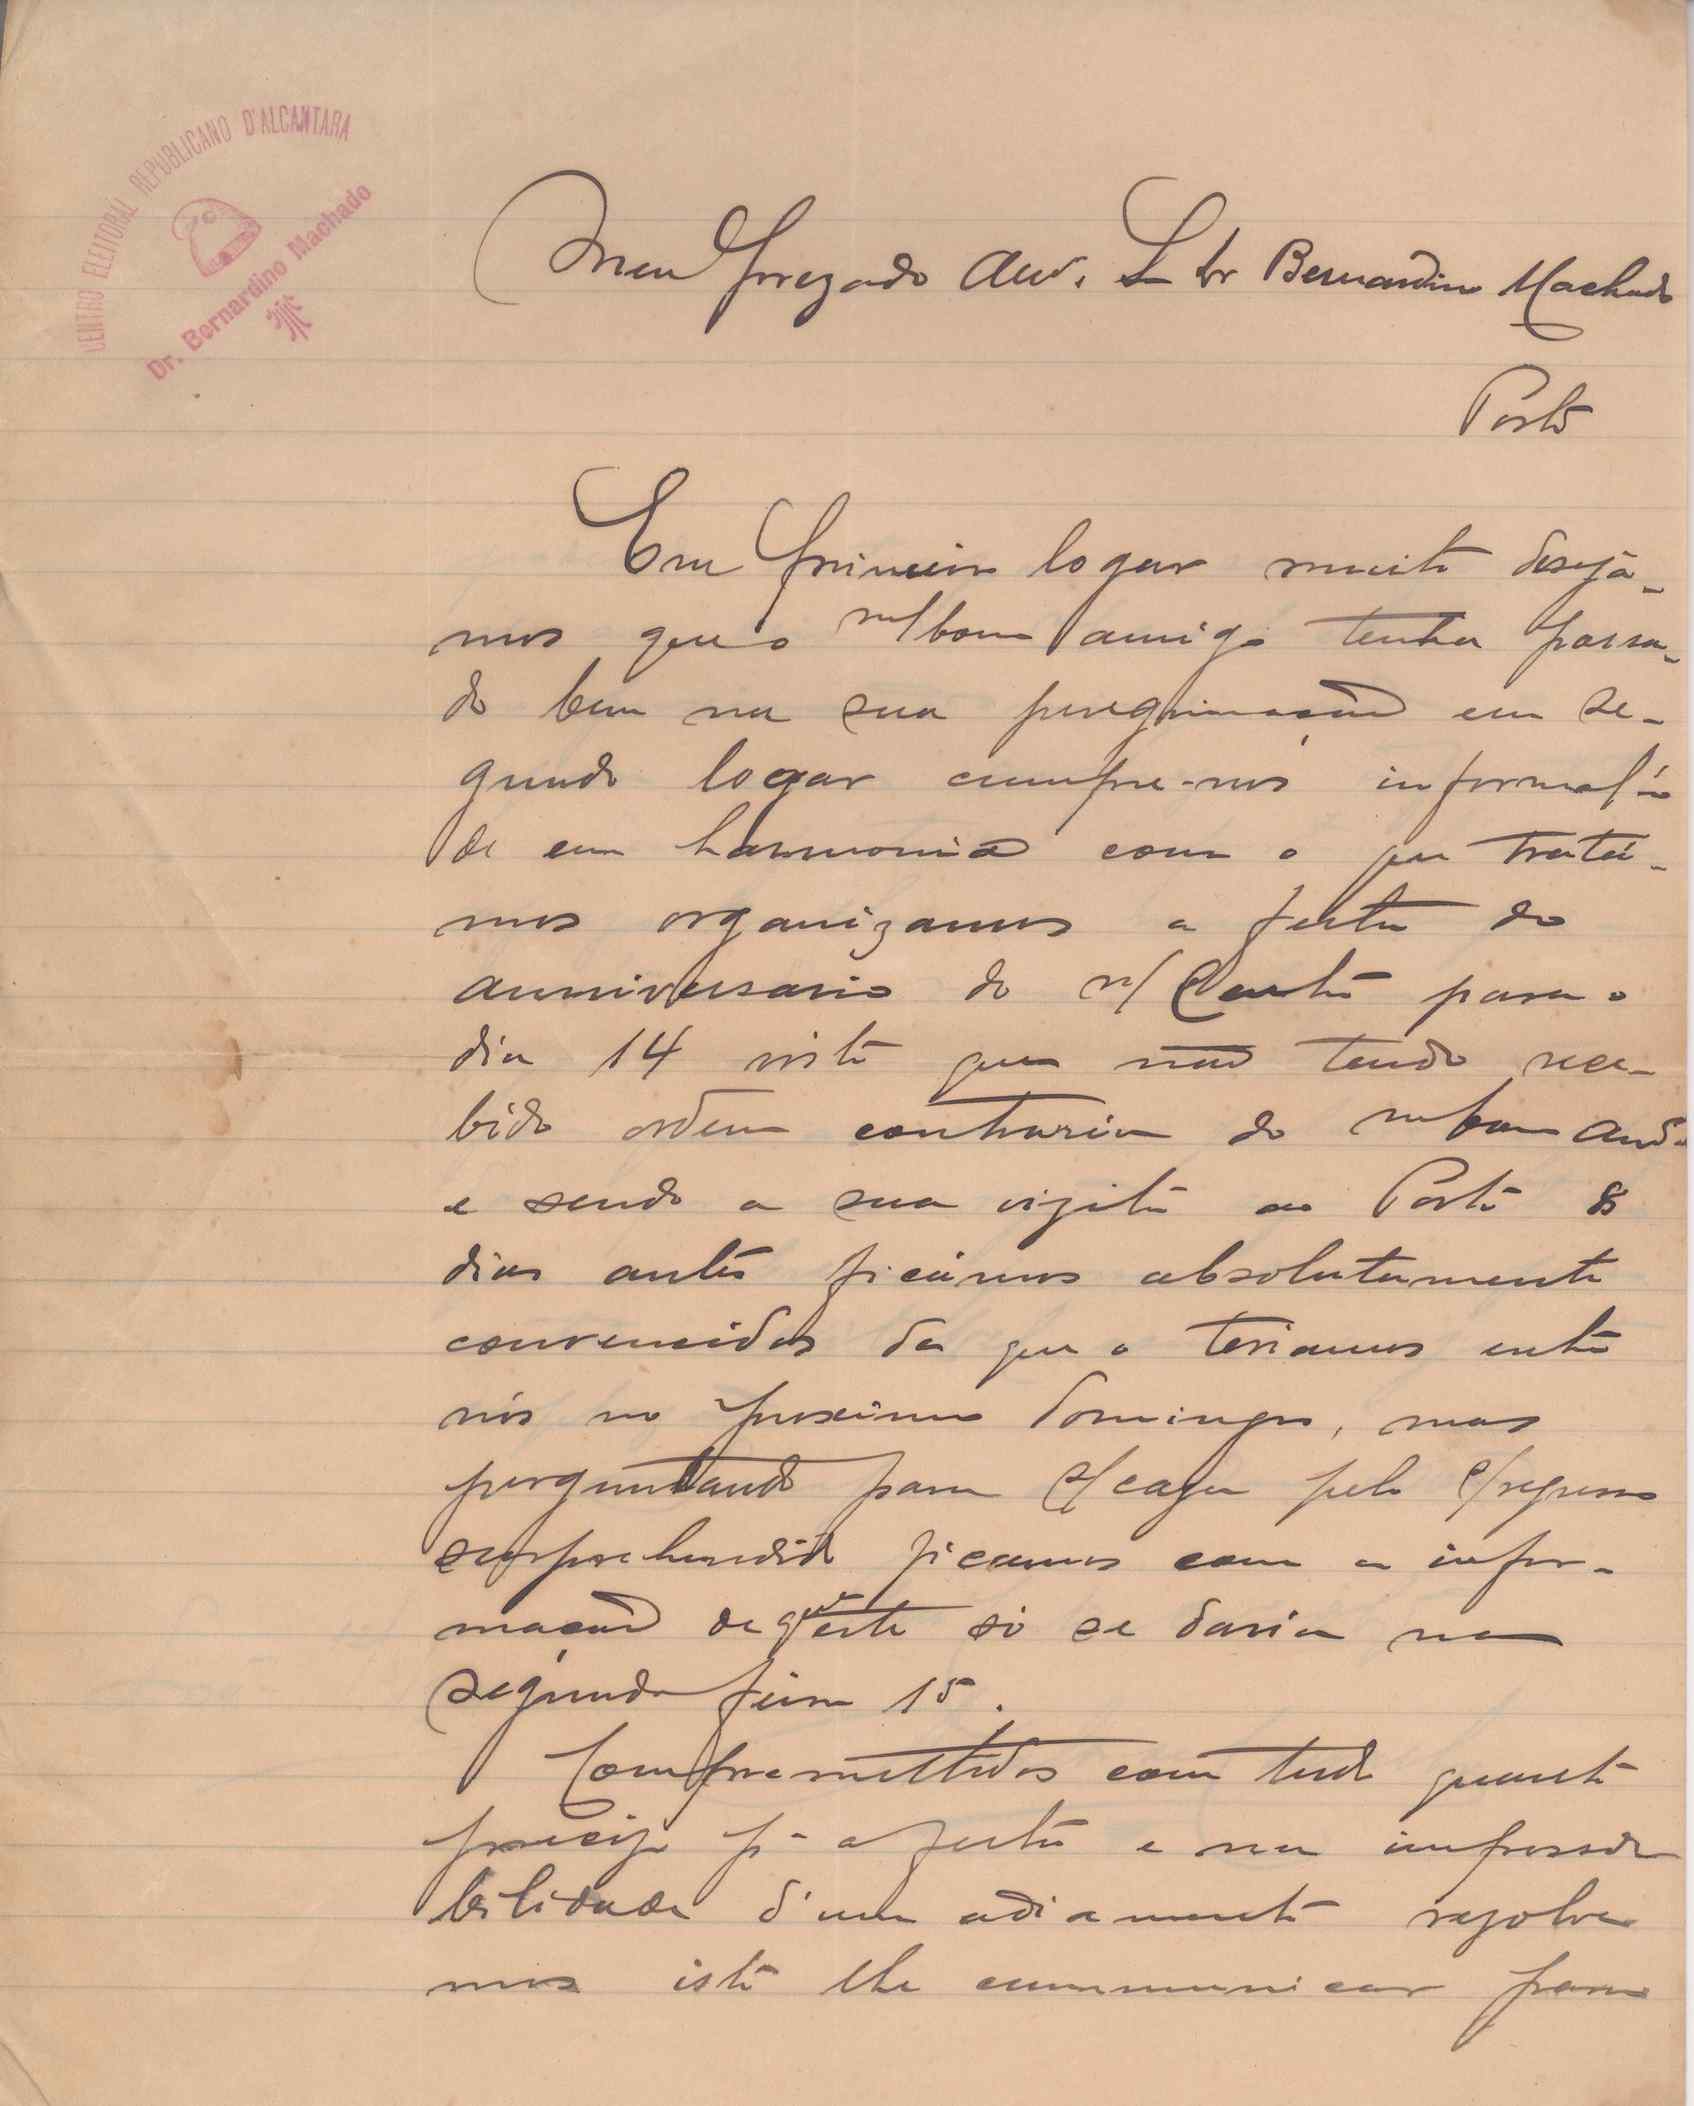 CENTRO ELEITORAL REPUBLICANO D'ALCANTARA
Dr. Bernardino Machado
Meu Prezado Am.º Sr Dr Bernardino Machado
Porto
Em primeiro logar muito desejá-
mos que o n/ bom amigo tenha passa-
do bem na sua peregrinação em se-
gundo logar cumpre-nos informal-o
de em harmonia com o que tratá-
mos organizamos a festa do
anniversario do n/ Centro para o
dia 14 visto que não tendo rece-
bido ordem contraria do n/ bom am.º
e sendo a sua vizita ao Porto 8
dias antes ficámos absolutamente
convencidos de que o teriamos entre
nós no proximo domingo, mas
perguntando para s/ caza pelo s/ regresso
surprehendido ficamos com a infor-
mação de que este só se daria na
segunda feira 15.
Compromettidos com tudo quanto
precizo p.ª a festa e na impossi
bilidade d'um adiamento rezolve
mos isto lhe communicar para